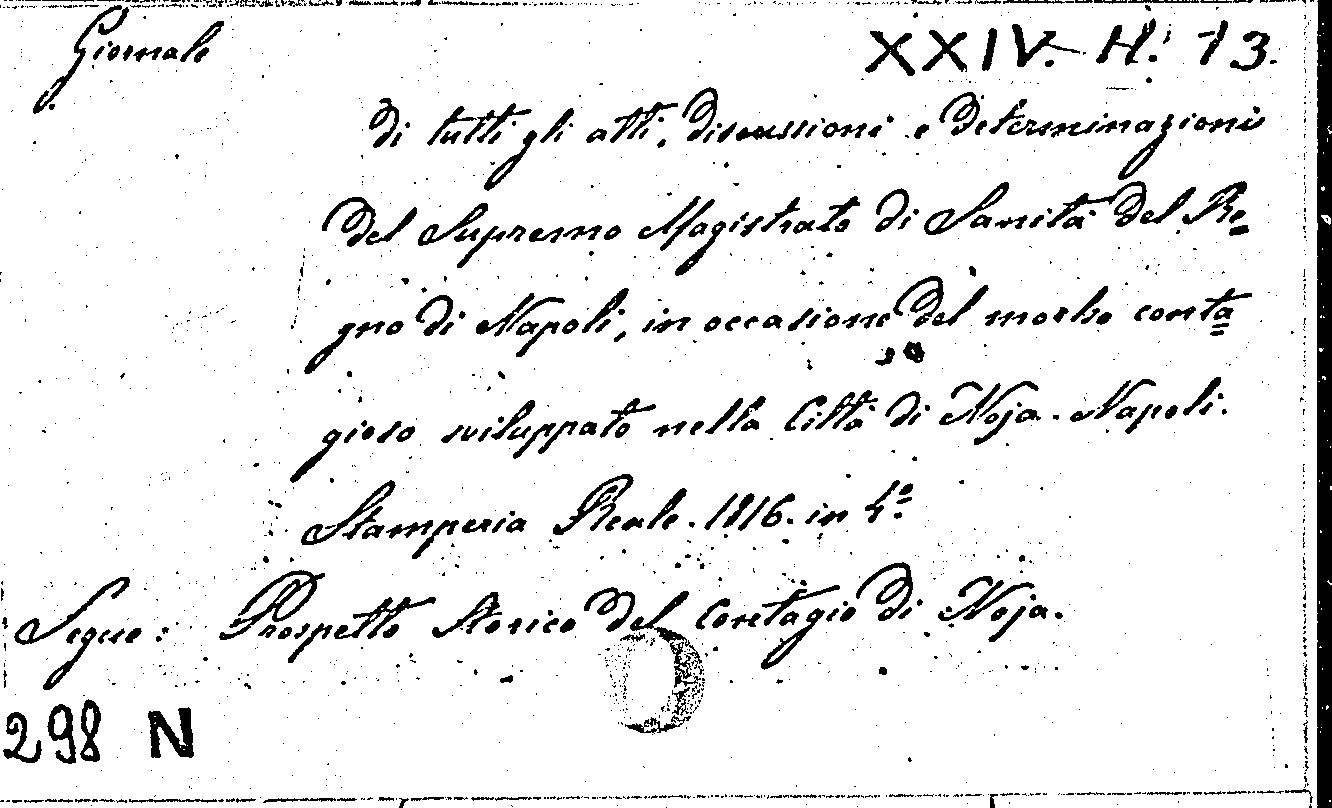 Giornale
XXIV. H. 13.
di tutti gli atti, discussioni e determinazioni
del Supremo Magistrato di Sanità del Re=
gno di Napoli, in occasione del morbo conta=
gioso sviluppato nella Città di Noja. Napoli.
Stamperia Reale. 1816. in 4.º
Segue: Prospetto Storico del Contagio di Noja.
298 N